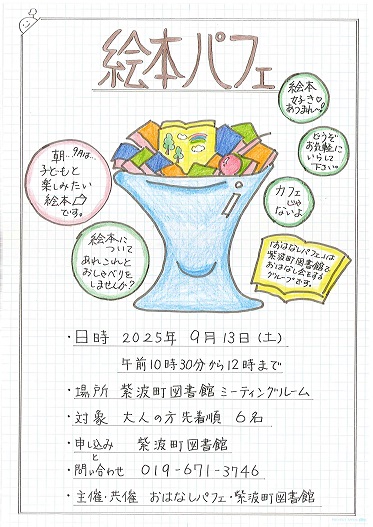 絵本パフェ
絵本
好き♡
あつまれ〜!
どうぞ
お気軽に
いらして
下さい。
朝…9月は…
子どもと
楽しみたい
絵本
です。
カフェ
じゃ
ないよ
絵本に
ついて
あれこれと
おしゃべりを
しませんか?
「おはなしパフェ」は
紫波町図書館で
おはなし会をする
グループです。
・日時 2025年 9月13日(土)
午前10時30分から12時まで
・場所 紫波町図書館 ミーティングルーム
・対象 大人の方 先着順 6名
・申し込み 紫波町図書館
と
・問い合わせ 019-671-3746
・主催・共催 おはなしパフェ・紫波町図書館